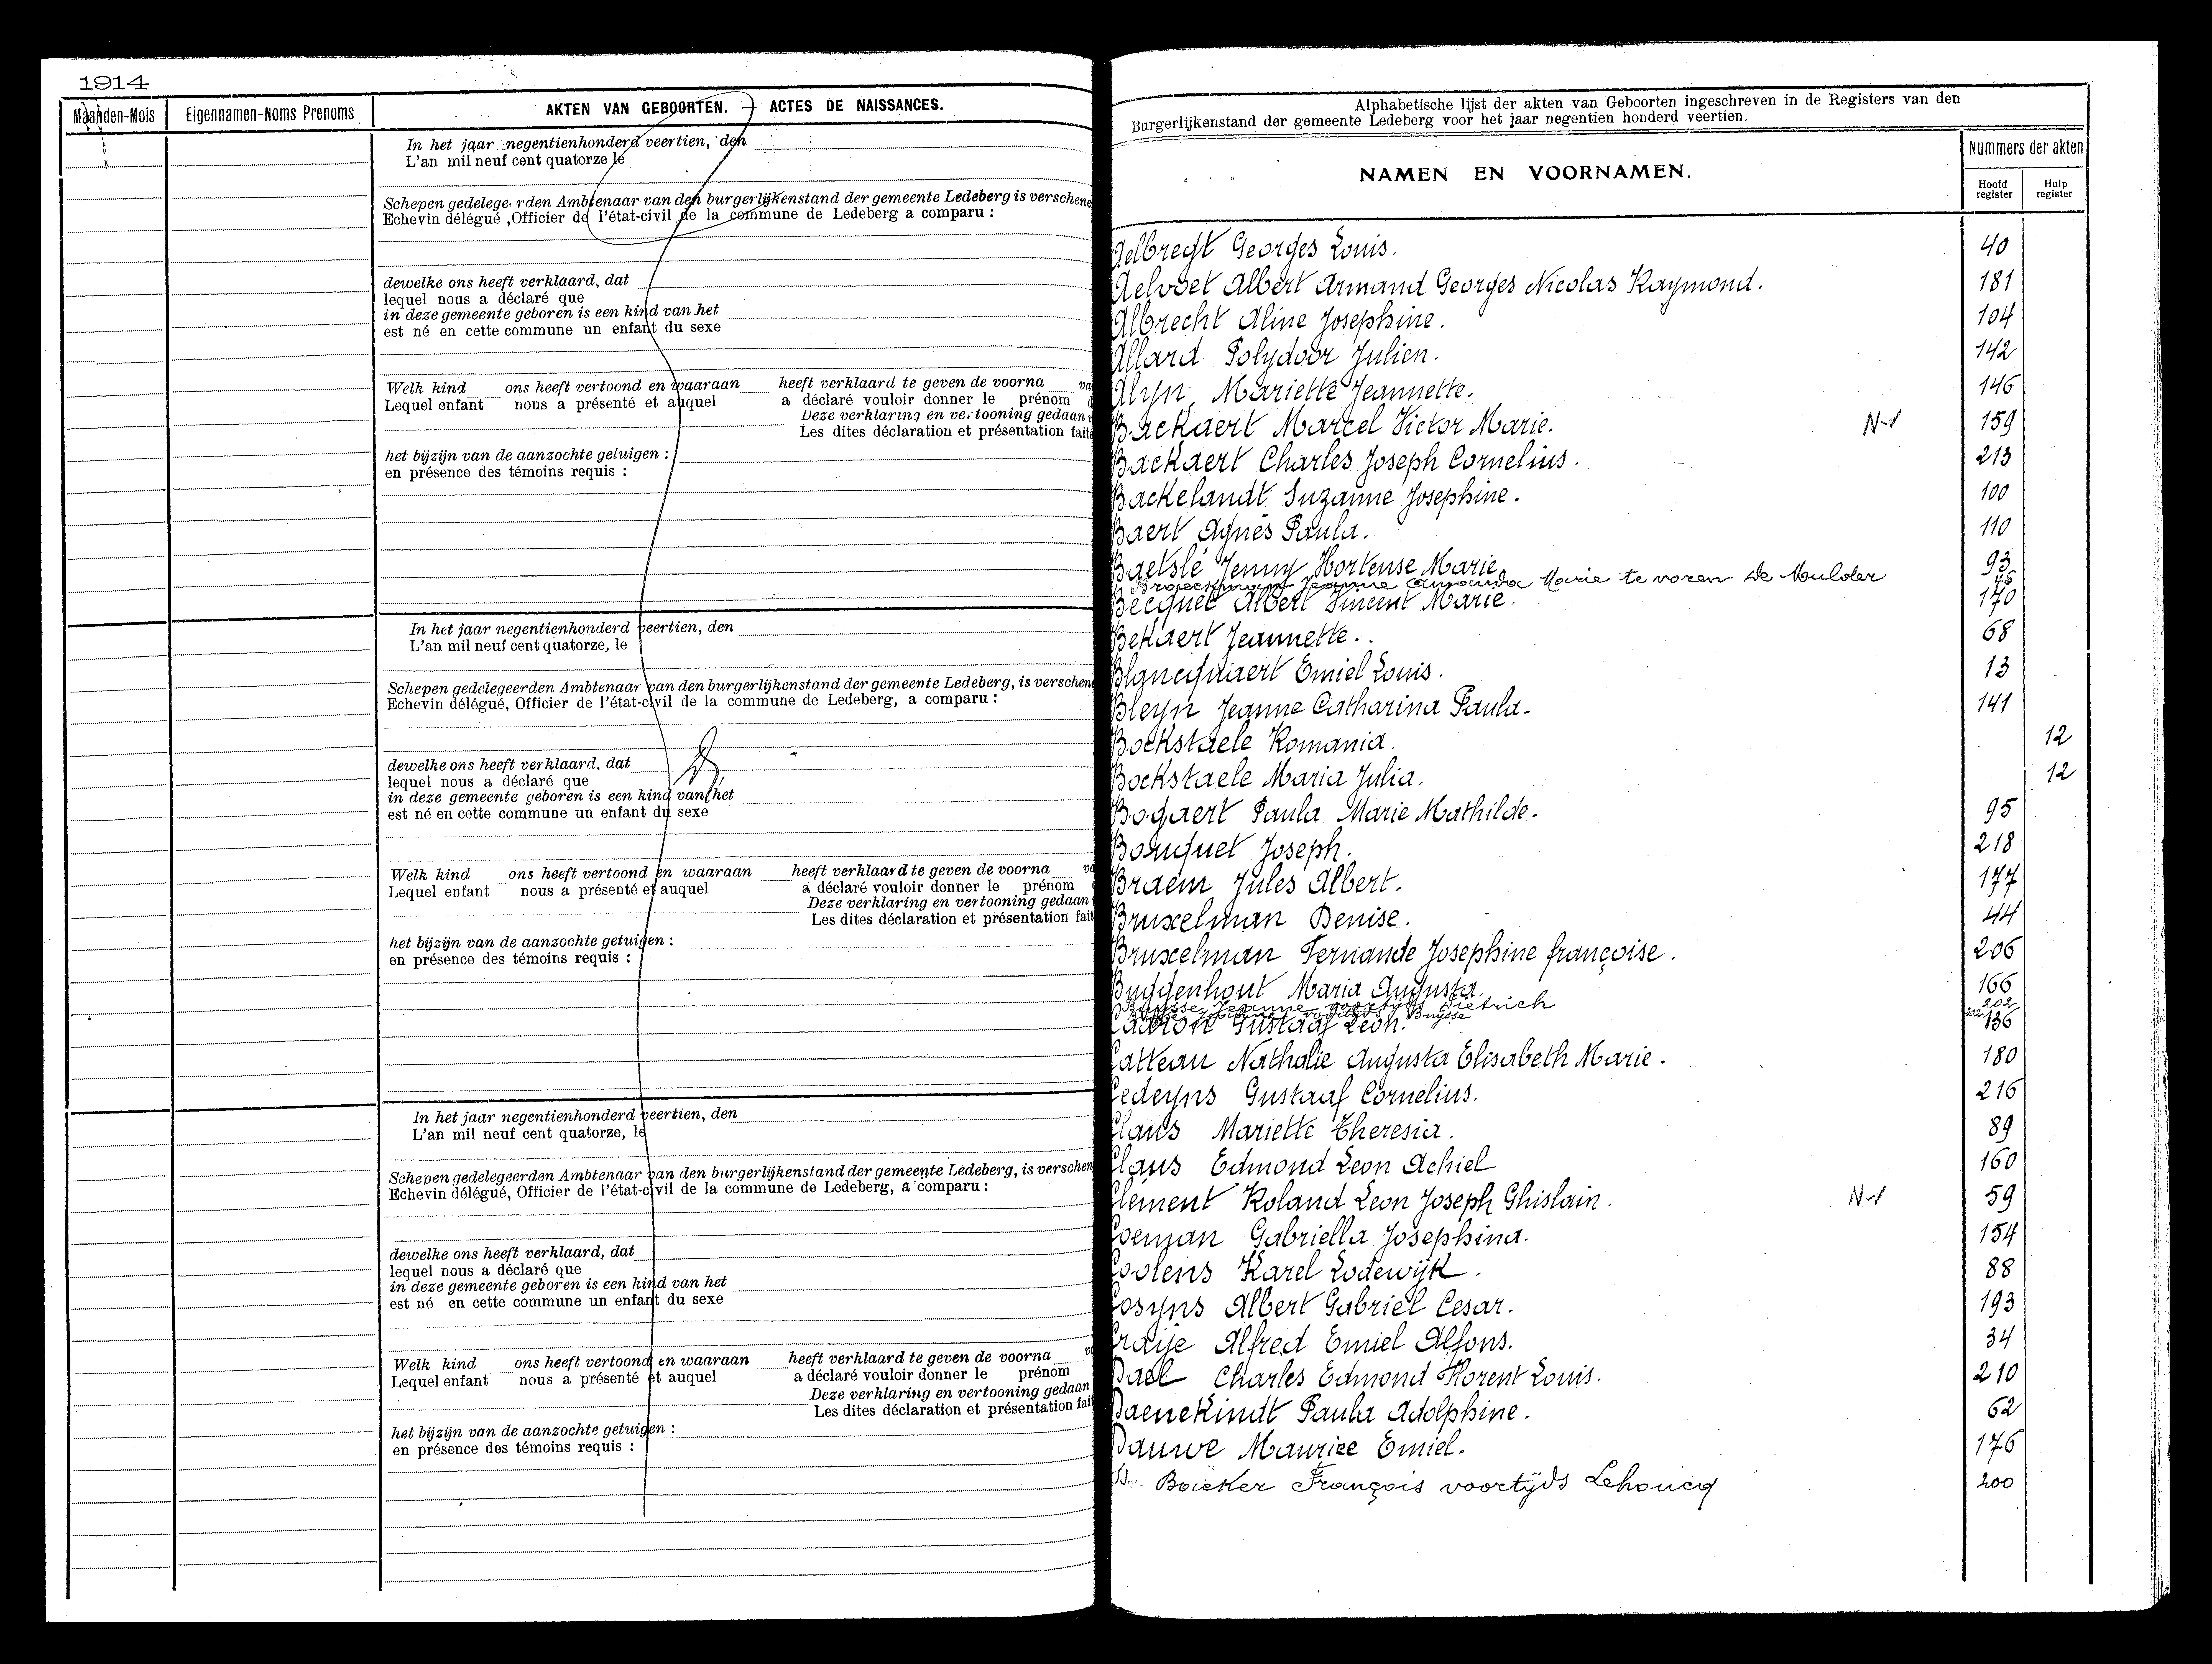 1914
Maanden-Mois Eigennamen-Noms Prenoms AKTEN VAN GEBOORTEN. — ACTES DE NAISSANCES.
In het jaar negentienhonderd veertien, den
L'an mil neuf cent quatorze le
Schepen gedelege rden Ambtenaar van den burgerlijkenstand der gemeente Ledeberg is verschene
Echevin délégué ,Officier de l'état-civil de la commune de Ledeberg a comparu :
dewelke ons heeft verklaard, dat
lequel nous a déclaré que
in deze gemeente geboren is een kind van het
est né en cette commune un enfant du sexe
Welk kind ons heeft vertoond en waaraan heeft verklaard te geven de voorna va
Lequel enfant nous a présenté et auquel a déclaré vouloir donner le prénom d
Deze verklaring en vertooning gedaan
Les dites déclaration et présentation faite
het bijzijn van de aanzochte getuigen :
en présence des témoins requis :
In het jaar negentienhonderd veertien, den
L'an mil neuf cent quatorze, le
Schepen gedelegeerden Ambtenaar van den burgerlijkenstand der gemeente Ledeberg, is verschen
Echevin délégué, Officier de l'état-civil de la commune de Ledeberg, a comparu :
dewelke ons heeft verklaard, dat
lequel nous a déclaré que
in deze gemeente geboren is een kind van het
est né en cette commune un enfant du sexe
Welk kind ons heeft vertoond en waaraan heeft verklaard te geven de voorna va
Lequel enfant nous a présenté et auquel a déclaré vouloir donner le prénom
Deze verklaring en vertooning gedaan
Les dites déclaration et présentation fait
het bijzijn van de aanzochte getuigen :
en présence des témoins requis :
In het jaar negentienhonderd veertien, den
L'an mil neuf cent quatorze, le
Schepen gedelegeerden Ambtenaar van den burgerlijkenstand der gemeente Ledeberg, is verschen
Echevin délégué, Officier de l'état-civil de la commune de Ledeberg, a comparu :
dewelke ons heeft verklaard, dat
lequel nous a déclaré que
in deze gemeente geboren is een kind van het
est né en cette commune un enfant du sexe
Welk kind ons heeft vertoond en waaraan heeft verklaard te geven de voorna
Lequel enfant nous a présenté et auquel a déclaré vouloir donner le prénom
Deze verklaring en vertooning gedaan
Les dites déclaration et présentation fait
het bijzijn van de aanzochte getuigen :
en présence des témoins requis :
Alphabetische lijst der akten van Geboorten ingeschreven in de Registers van den
Burgerlijkenstand der gemeente Ledeberg voor het jaar negentien honderd veertien.
NAMEN EN VOORNAMEN. Nummers der akten
Hoofd register Hulp register
Aelbregt Georges Louis. 40
Aelvoet Albert Armand Georges Nicolas Raymond. 181
Albrecht Aline Josephine. 104
Allard Polydoor Julien. 142
Alyn Mariette Jeannette. 146
Backaert Marcel Victor Marie. N-1 159
Backaert Charles Joseph Cornelius. 213
Backelandt Suzanne Josephine. 100
Baert Agnès Paula. 110
Baetslé Jenny Hortense Marie. 93
Broeckmans Jeanne Amanda Marie te voren De Mulder 76
Becquet Albert Vincent Marie. 170
Bekaert Jeannette. 68
Blancquaert Emiel Louis. 13
Bleyn Jeanne Catharina Paula. 141
Bockstaele Romania. 12
Bockstaele Maria Julia. 12
Bogaert Paula Marie Mathilde. 95
Bouquet Joseph. 218
Braem Jules Albert. 177
Bruxelman Denise. 44
Bruxelman Fernande Josephine françoise. 206
Buggenhout Maria Augusta. 166
Buysse Jeanne voortijds Dietrich 202
voortijds Buysse
Cabron Gustaaf Leon. 136
Catteau Nathalie Augusta Elisabeth Marie. 180
Cedeyns Gustaaf Cornelius. 216
Claus Mariette Theresia. 89
Claus Edmond Leon Achiel 160
Clement Roland Leon Joseph Ghislain. N-1 59
Coeman Gabriella Josephina. 154
Coolens Karel Lodewijk. 88
Cosyns Albert Gabriel Cesar. 193
Craije Alfred Emiel Alfons. 34
Dael Charles Edmond Florent Louis. 210
Daenekindt Paula Adolphine. 62
Dauwe Maurice Emiel. 176
Boeker François voortijds Lehoucq 200